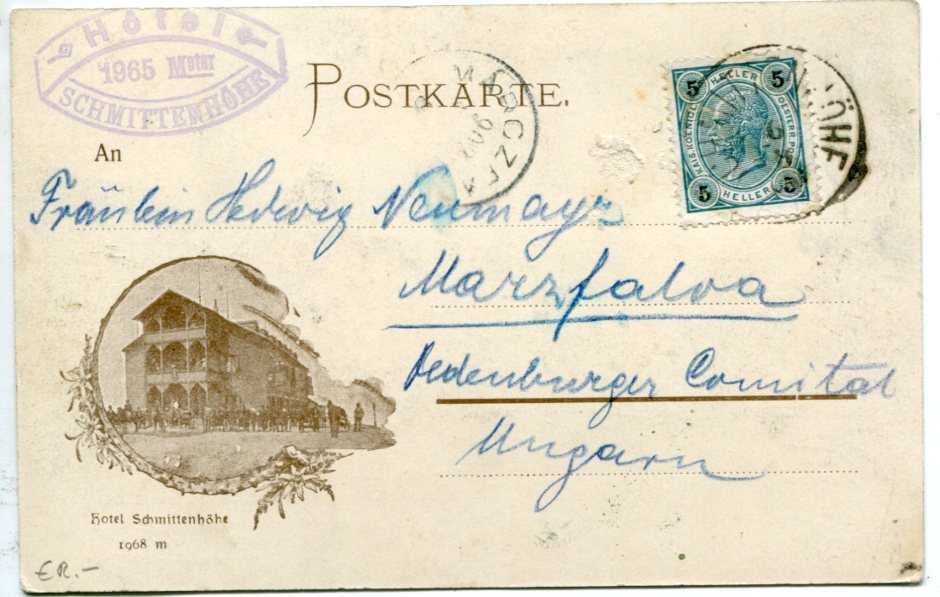 Hôtel
1965 Meter
SCHMITTENHÖHE
POSTKARTE.
An
Fräulein Hedwig Neumayr
Marzfalva
Oedenburger Comitat
Ungarn
5 HELLER 5
KAIS. KOENIGL. OESTERR. POST
5 HELLER 5
Hotel Schmittenhöhe
1968 m